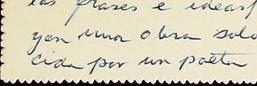 las frases e ideas
yen una obra solo
cida por un poeta